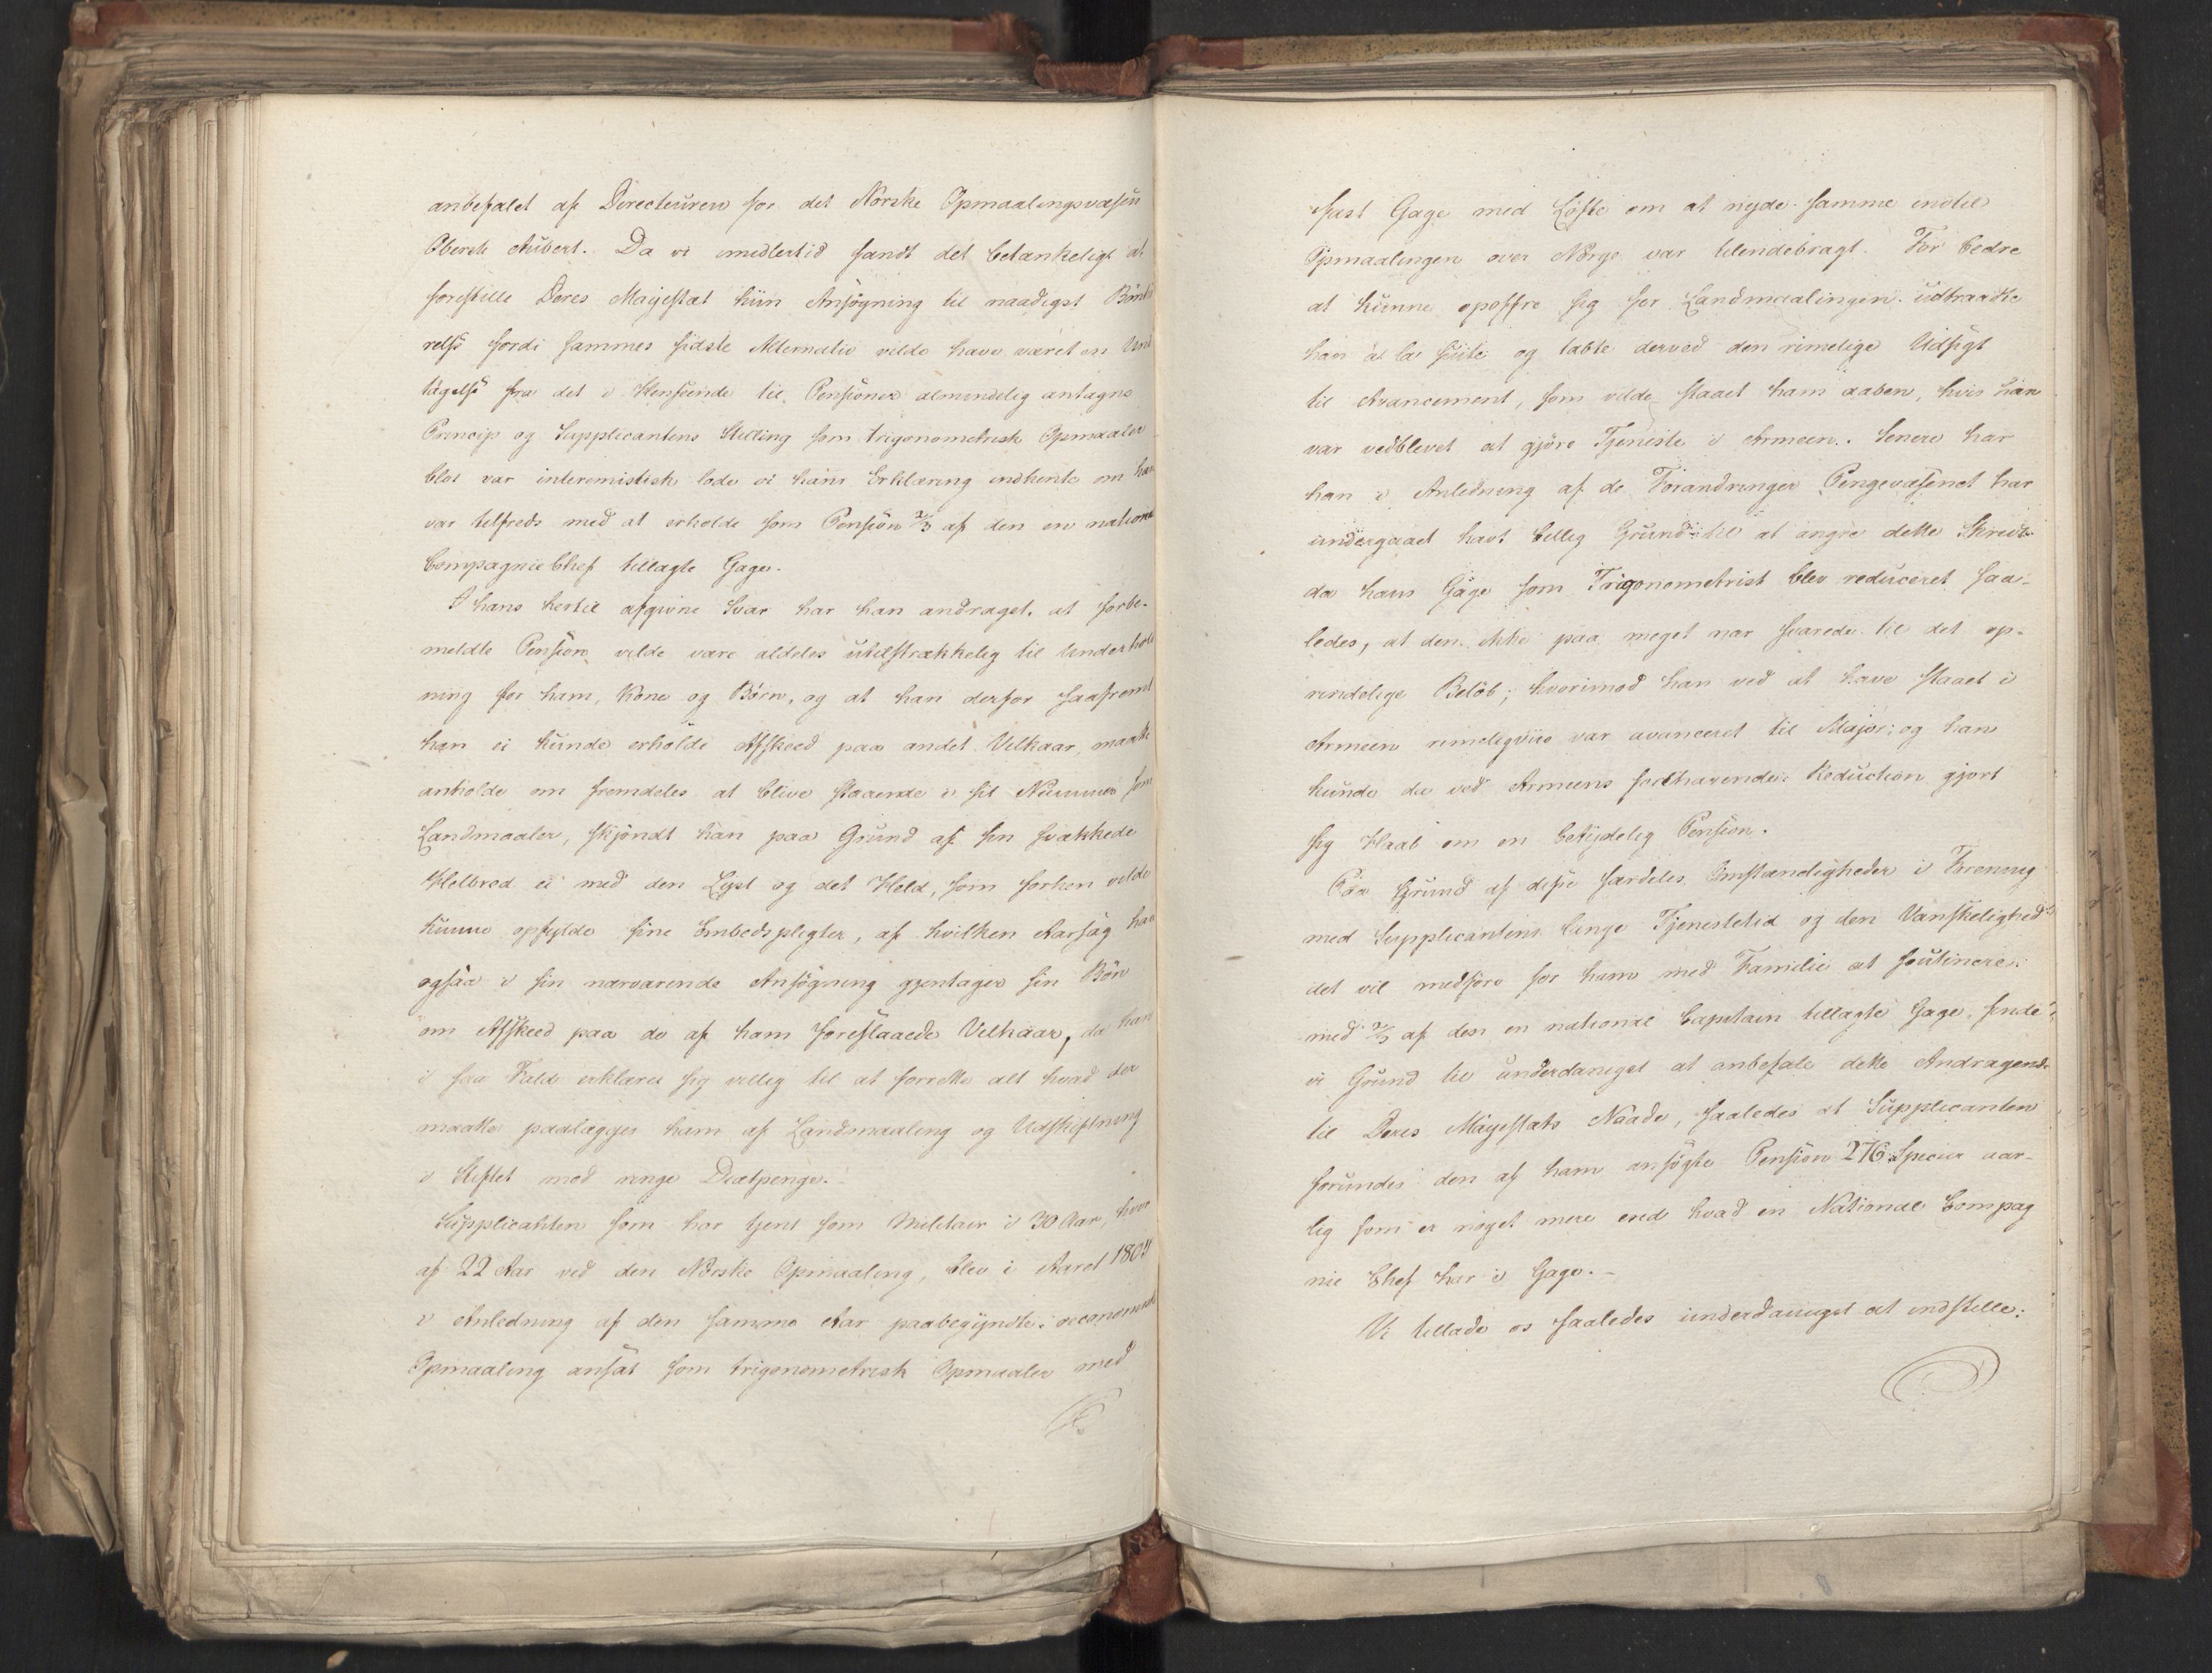 anbefalet af Directeuren for det Norske Opmaalingsvæsen
Oberst Aubert. Da vi imidlertid fandt det betænkeligt at
forestille Deres Majestæt hiin Ansøgning til naadigst Bønhø
relse fordi sammes sidste Alternativ vilde have været en Und
tagelse fra det i Henseende til Pensioner almindelig antagne
Princip og Supplicantens Stilling som trigonometrisk Opmaaler
blot var interimistisk lode vi hans Erklæring indhente om han
var tilfreds med at erholde som Pension 2/3 af den en national
Compagnie Chef tillagte Gage.
I hans hertil afgivne Svar har han andraget, at forbe-
meldte Pension vilde være aldeles utilstrækkelig til Underhold
ning for ham, Kone og Børn, og at han derfor saafremt
han ei kunde erholde Afskeed paa andet Velkaar, maatte
anholde om fremdeles at blive staaende i sit Nummer som
Landmaaler, skjøndt han paa Grund af sin svækkede
Helbred ei med den Lyst og det Held, som forhen vilde
kunne opfylde sine Embedspligter, af hvilken Aarsag han
ogsaa i sin nærværende Ansøgning gjentager sin Bøn
om Afskeed paa de af ham foreslaaede Velkaar, da han
i saa Fald erklærer sig villig til at forrette alt hvad der
maatte paalægges ham af Landmaaling og Udskiftning
i Stiftet mod ringe Diætpenge.
Supplicanten som har tjent som Militair i 30 Aar, hvor
af 22 Aar ved den Norske Opmaaling, blev i Aaret 1805
i Anledning af den samme Aar paabegyndte oeconomisk
Opmaaling ansat som trigonometrisk Opmaaler med
fast Gage med Løfte om at nyde samme indtil
Opmaalingen over Norge var tilendebragt. For bedre
at kunne opoffre sig for Landmaalingen udtraadte
han à la suite og tabte derved den rimelige Udsigt
til Avancement, som vilde staaet ham aaben, hvis han
var vedblevet at gjøre Tjeneste i Armeen. Senere har
han i Anledning af de Forandringer Pengevæsenet har
undergaaet havt billig Grund til at angre dette Skridt
da hans Gage som Trigonometrist blev reduceret saa-
ledes, at den ikke paa meget nær svarede til det op-
rindelige Beløb; hvorimod han ved at have staaet i
Armeen rimeligviis var avanceret til Major; og han
kunde da ved Armeens forehavende Reduction gjort
sig Haab om en betydelig Pension.
Paa Grund af disse særdeles Omstændigheder i Forening
med Supplicantens lange Tjenestetid og den Vanskelighed
det vil medføre for ham med Familie at soutinere
med 2/3 af den en national Capitain tillagte Gage, finde
vi Grund til underdanigst at anbefale dette Andragende
til Deres Majestæts Naade, saaledes at Supplicanten
forundes den af ham ansøgte Pension 276 Species aar-
lig som er noget mere end hvad en National Compag
nie Chef har i Gage.-
Vi tillade os saaledes underdanigst at indstille: